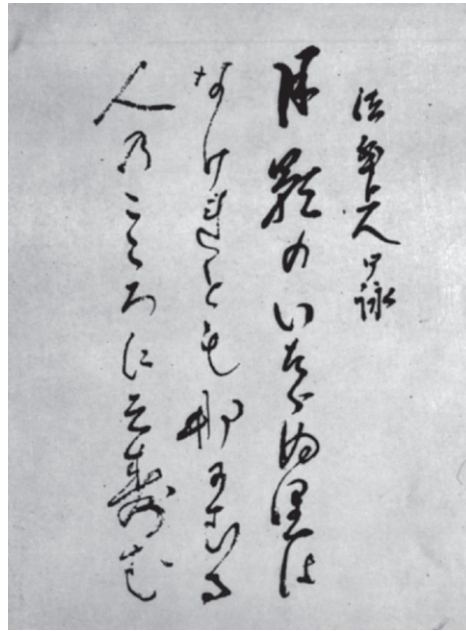 法然上人御詠
月影のいたらぬ里は
なけれとも那可むる
人乃こゝろにそ寿む